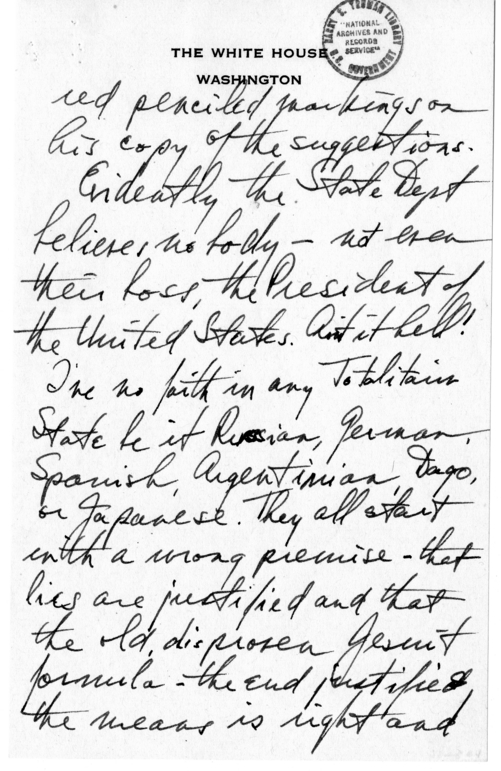 HARRY S. TRUMAN LIBRARY
"NATIONAL
ARCHIVES AND
RECORDS
SERVICE"
U.S. GOVERNMENT
THE WHITE HOUSE
WASHINGTON
red penciled markings on
his copy of the suggestions.
Evidently the State Dept
believes nobody – not even
their boss, the President of
the United States. Ain't it hell!
I've no faith in any Totalitain
State be it Russian, German,
Spanish, Argentinian, Dago,
or Japanese. They all start
with a wrong premise - that
lies are justified and that
the old, disproven Jesuit
formula - the end justifies
the means is right and